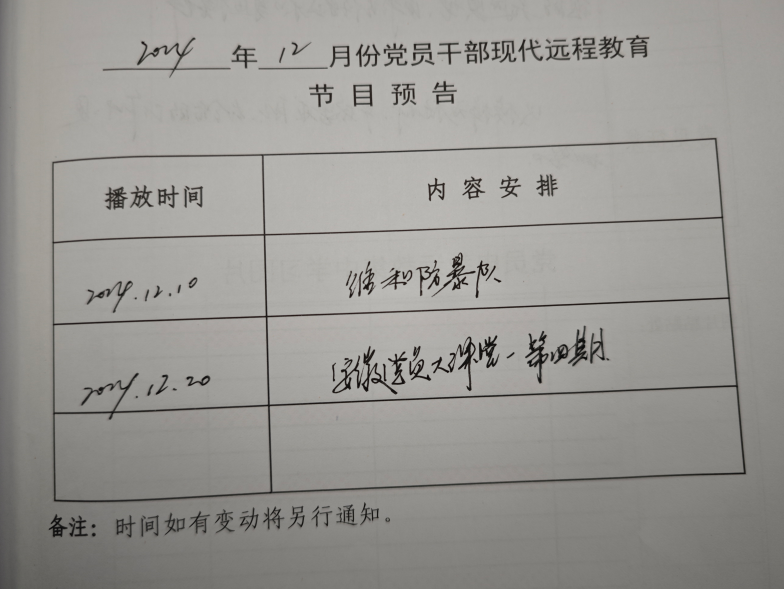 2024年12月份党员干部现代远程教育
节目预告
播放时间 内容安排
2024.12.10 维和防暴队
2024.12.20 安徽党员大课堂-第四期
备注：时间如有变动将另行通知。